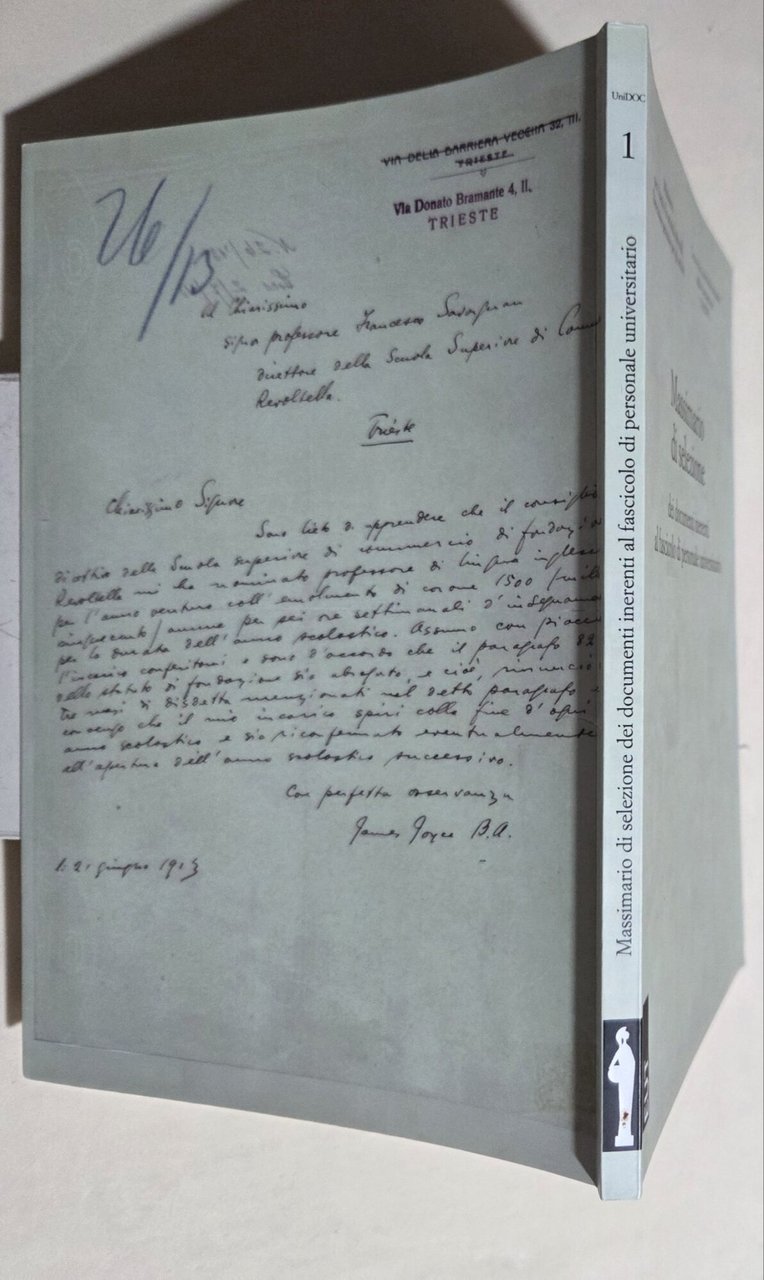 VIA DELLA BARRIERA VECCHIA 32, III.
TRIESTE.
Via Donato Bramante 4, II.
TRIESTE
26/13
Al Chiarissimo
signor professore Francesco Savorgnan
direttore della Scuola Superiore di
Revoltella.
Trieste
Chiarissimo Signore
Sono lieto di apprendere che il consiglio
direttivo della Scuola superiore di commercio di fondazione
Revoltella mi ha nominato professore di lingua inglese
per l'anno venturo coll'emolumento di corone 1500 (mille
cinquecento) annue per sei ore settimanali d'
per la durata dell'anno scolastico. Assumo con
l'incarico conferitomi e sono d'accordo che il paragrafo 82
dello statuto di fondazione sia abrogato, e cioè, rinuncio
tre mesi di disdetta menzionati nel detto paragrafo e
convengo che il mio incarico spiri colla fine d'ogni
anno scolastico e sia riconfermato eventualmente
all'apertura dell'anno scolastico successivo.
Con perfetta osservanza
James Joyce B.A.
giugno 1913
UniDOC
1
Massimario di selezione dei documenti inerenti al fascicolo di personale universitario
Massimario
di selezione
dei documenti inerenti
al fascicolo di personale universitario